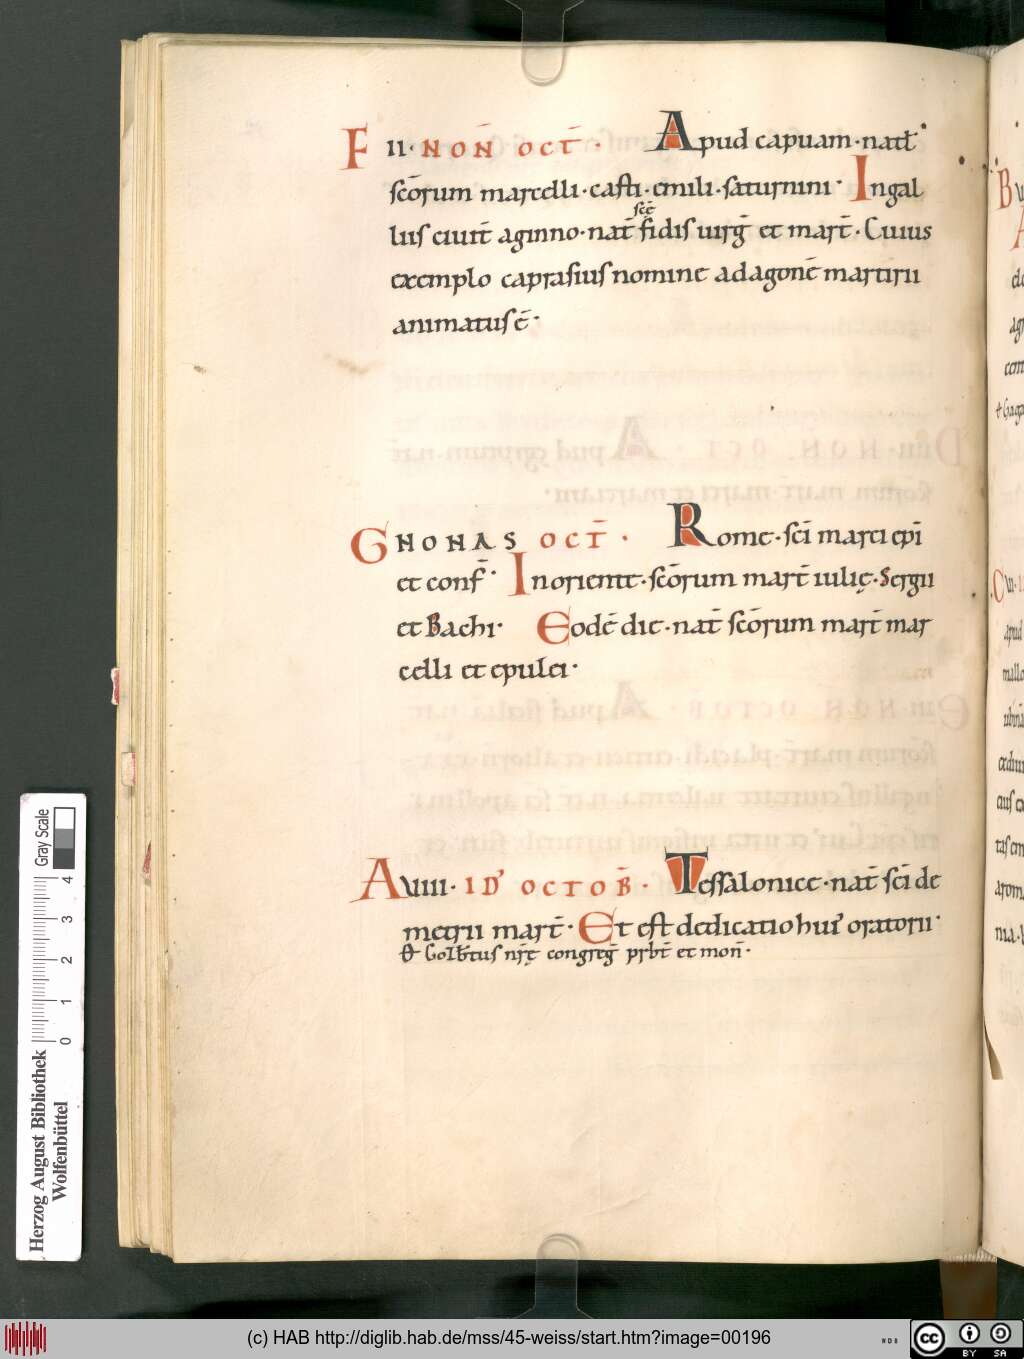 F II· NON̄ OCT̄· Apud capuam·nat̄
sc̄orum marcelli·casti·emili·saturnini· Ingal
lius ciuit̄ aginno·nat̄ sc̄ę fidis uirḡ et mart̄·Cuius
exemplo caprasius nomine ad agonē martirii
animatus ē·
G NONAS OCT̄· Rome·sc̄i marci ep̄i
et conf̄· In oriente·sc̄orum mart̄ iulię·Sergii
et Bachi· Eodē die·nat̄ sc̄orum mart̄ mar
celli et epulei·
A VIIII· ID' OCTOB̄· Tessalonice·nat̄ sc̄i de
metrii mart̄· Et est dedicatio hui' oratorii·
congreḡ prb̄t et mon̄·
Herzog August Bibliothek
Wolfenbüttel
0 1 2 3 4
Gray Scale
(c) HAB http://diglib.hab.de/mss/45-weiss/start.htm?image=00196
WDB
cc BY SA